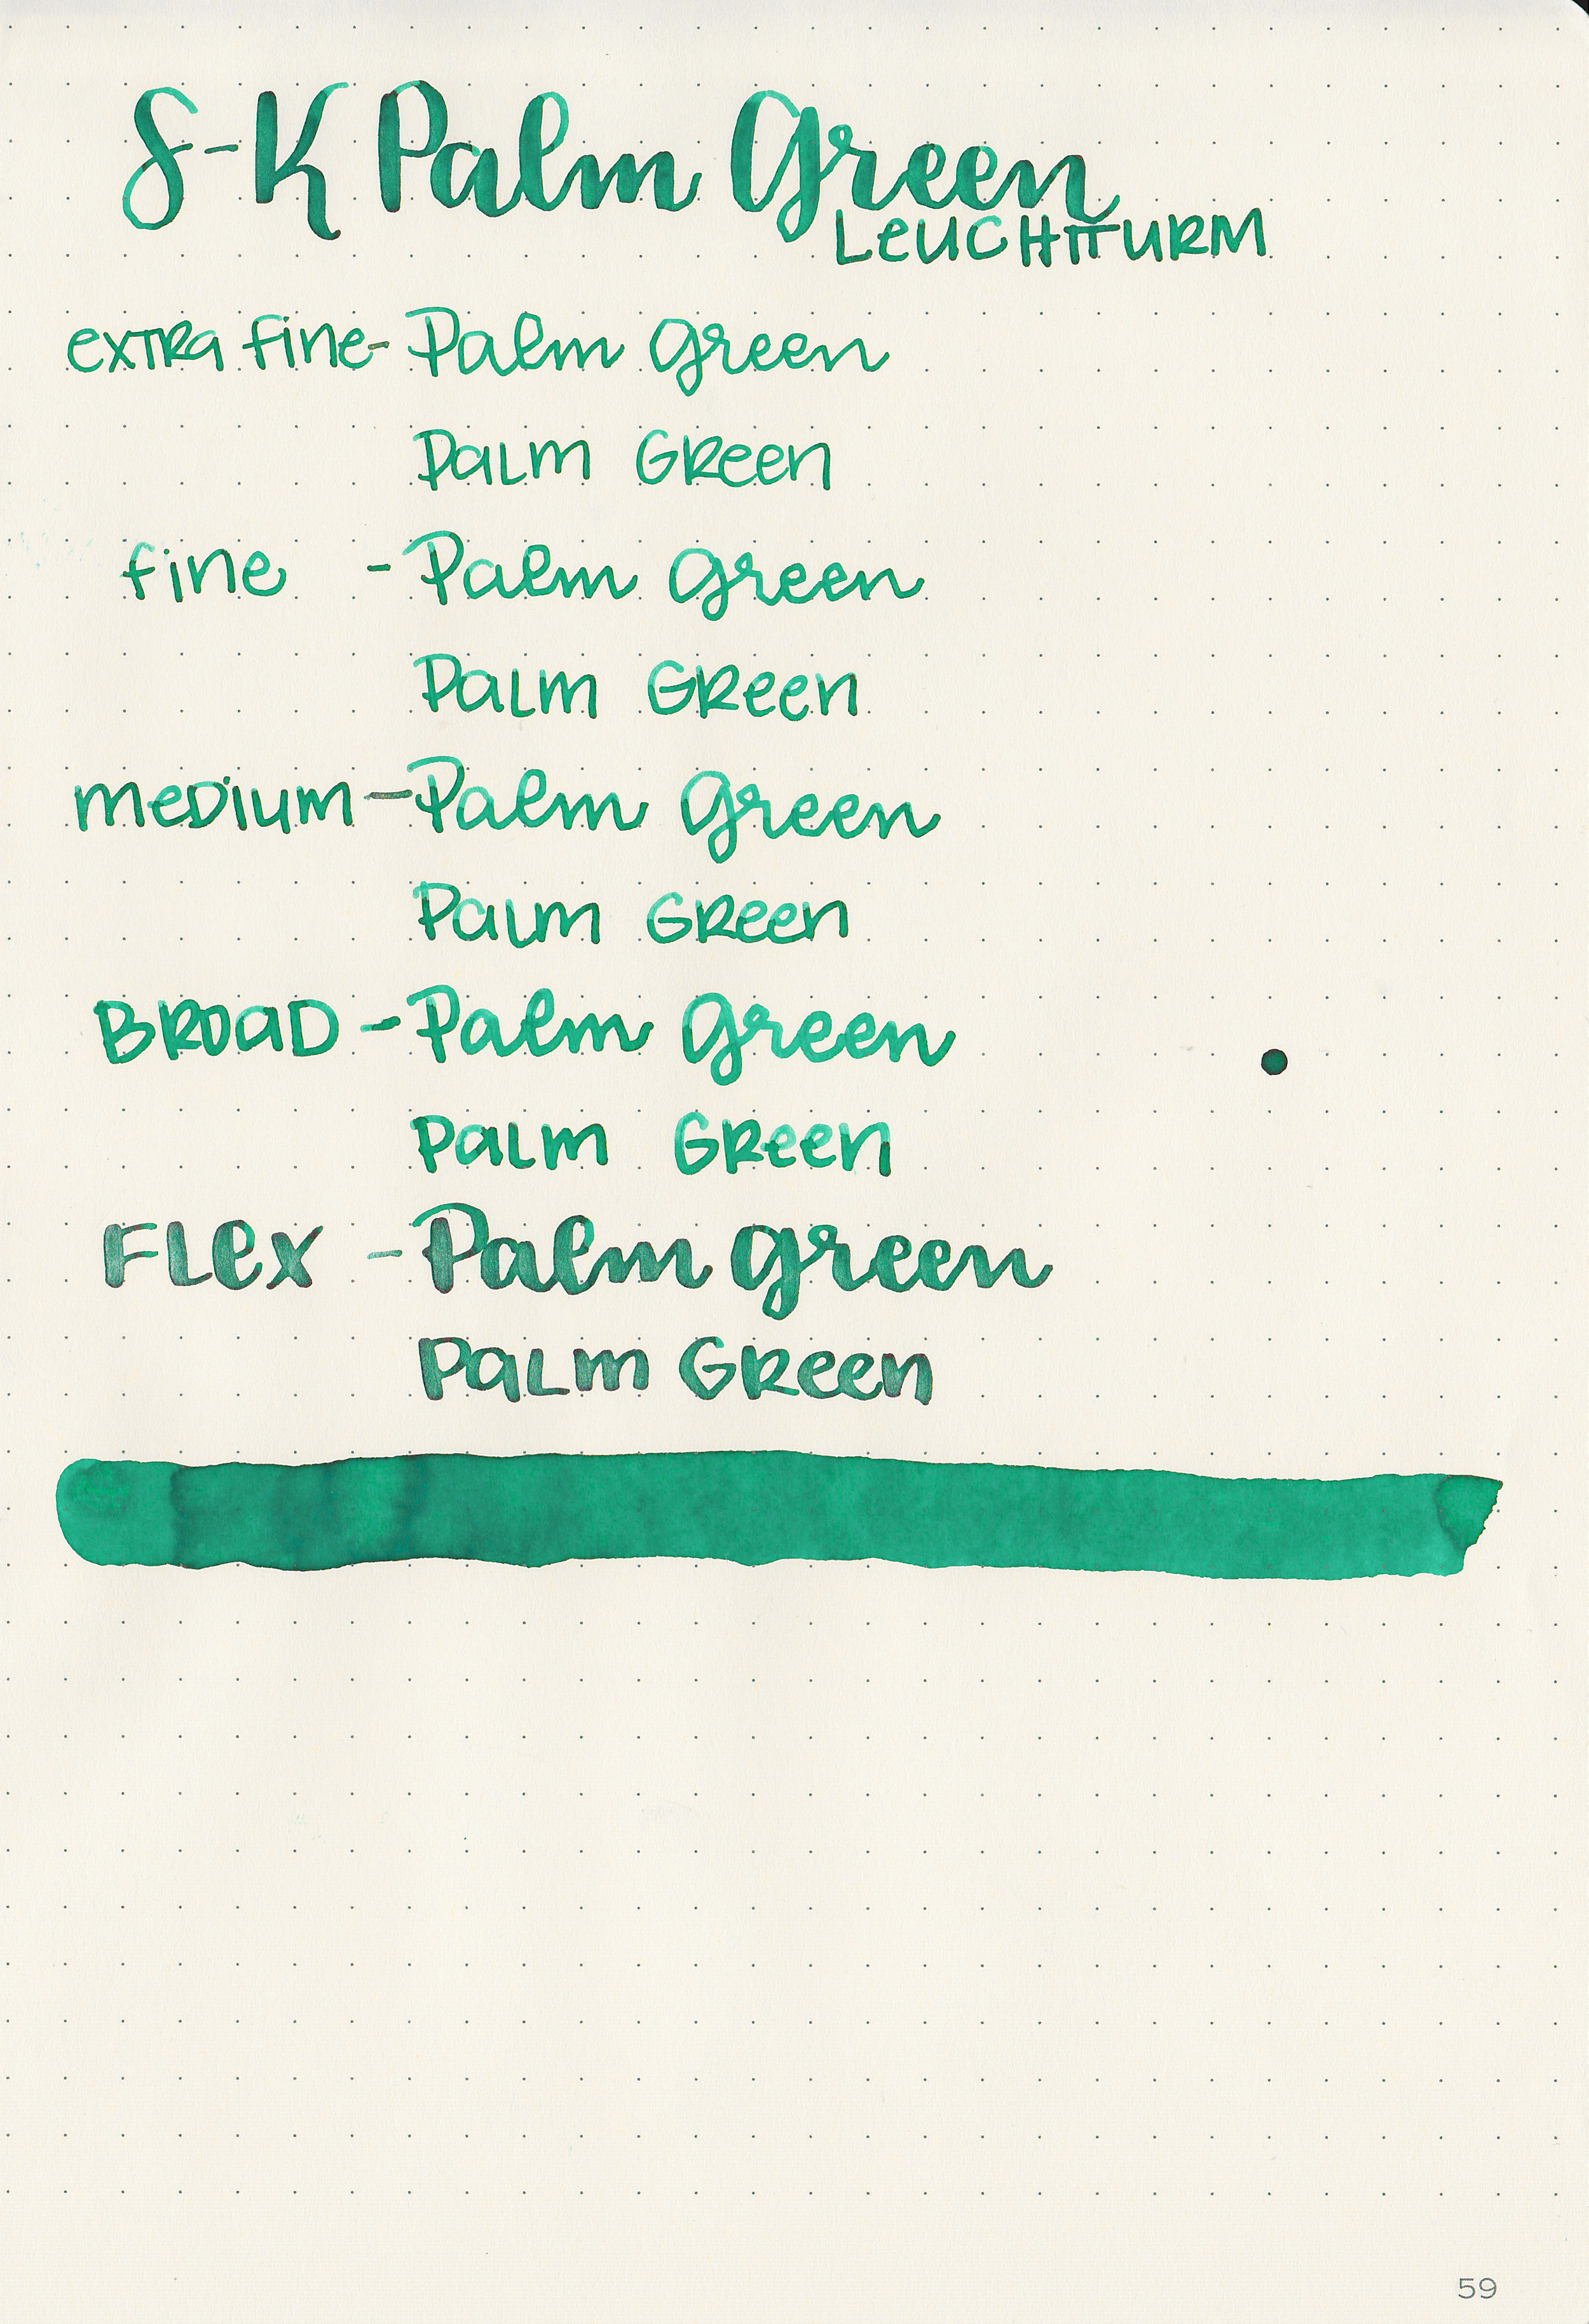 S-K Palm Green
LeUCHTTURM
exTRa fine- Palm Green
PaLm GReen
fine - Palm Green
PaLm GReen
meDium - Palm Green
PaLm GReen
BROaD - Palm Green
PaLm GReen
FLex - Palm Green
PaLm GReen
59